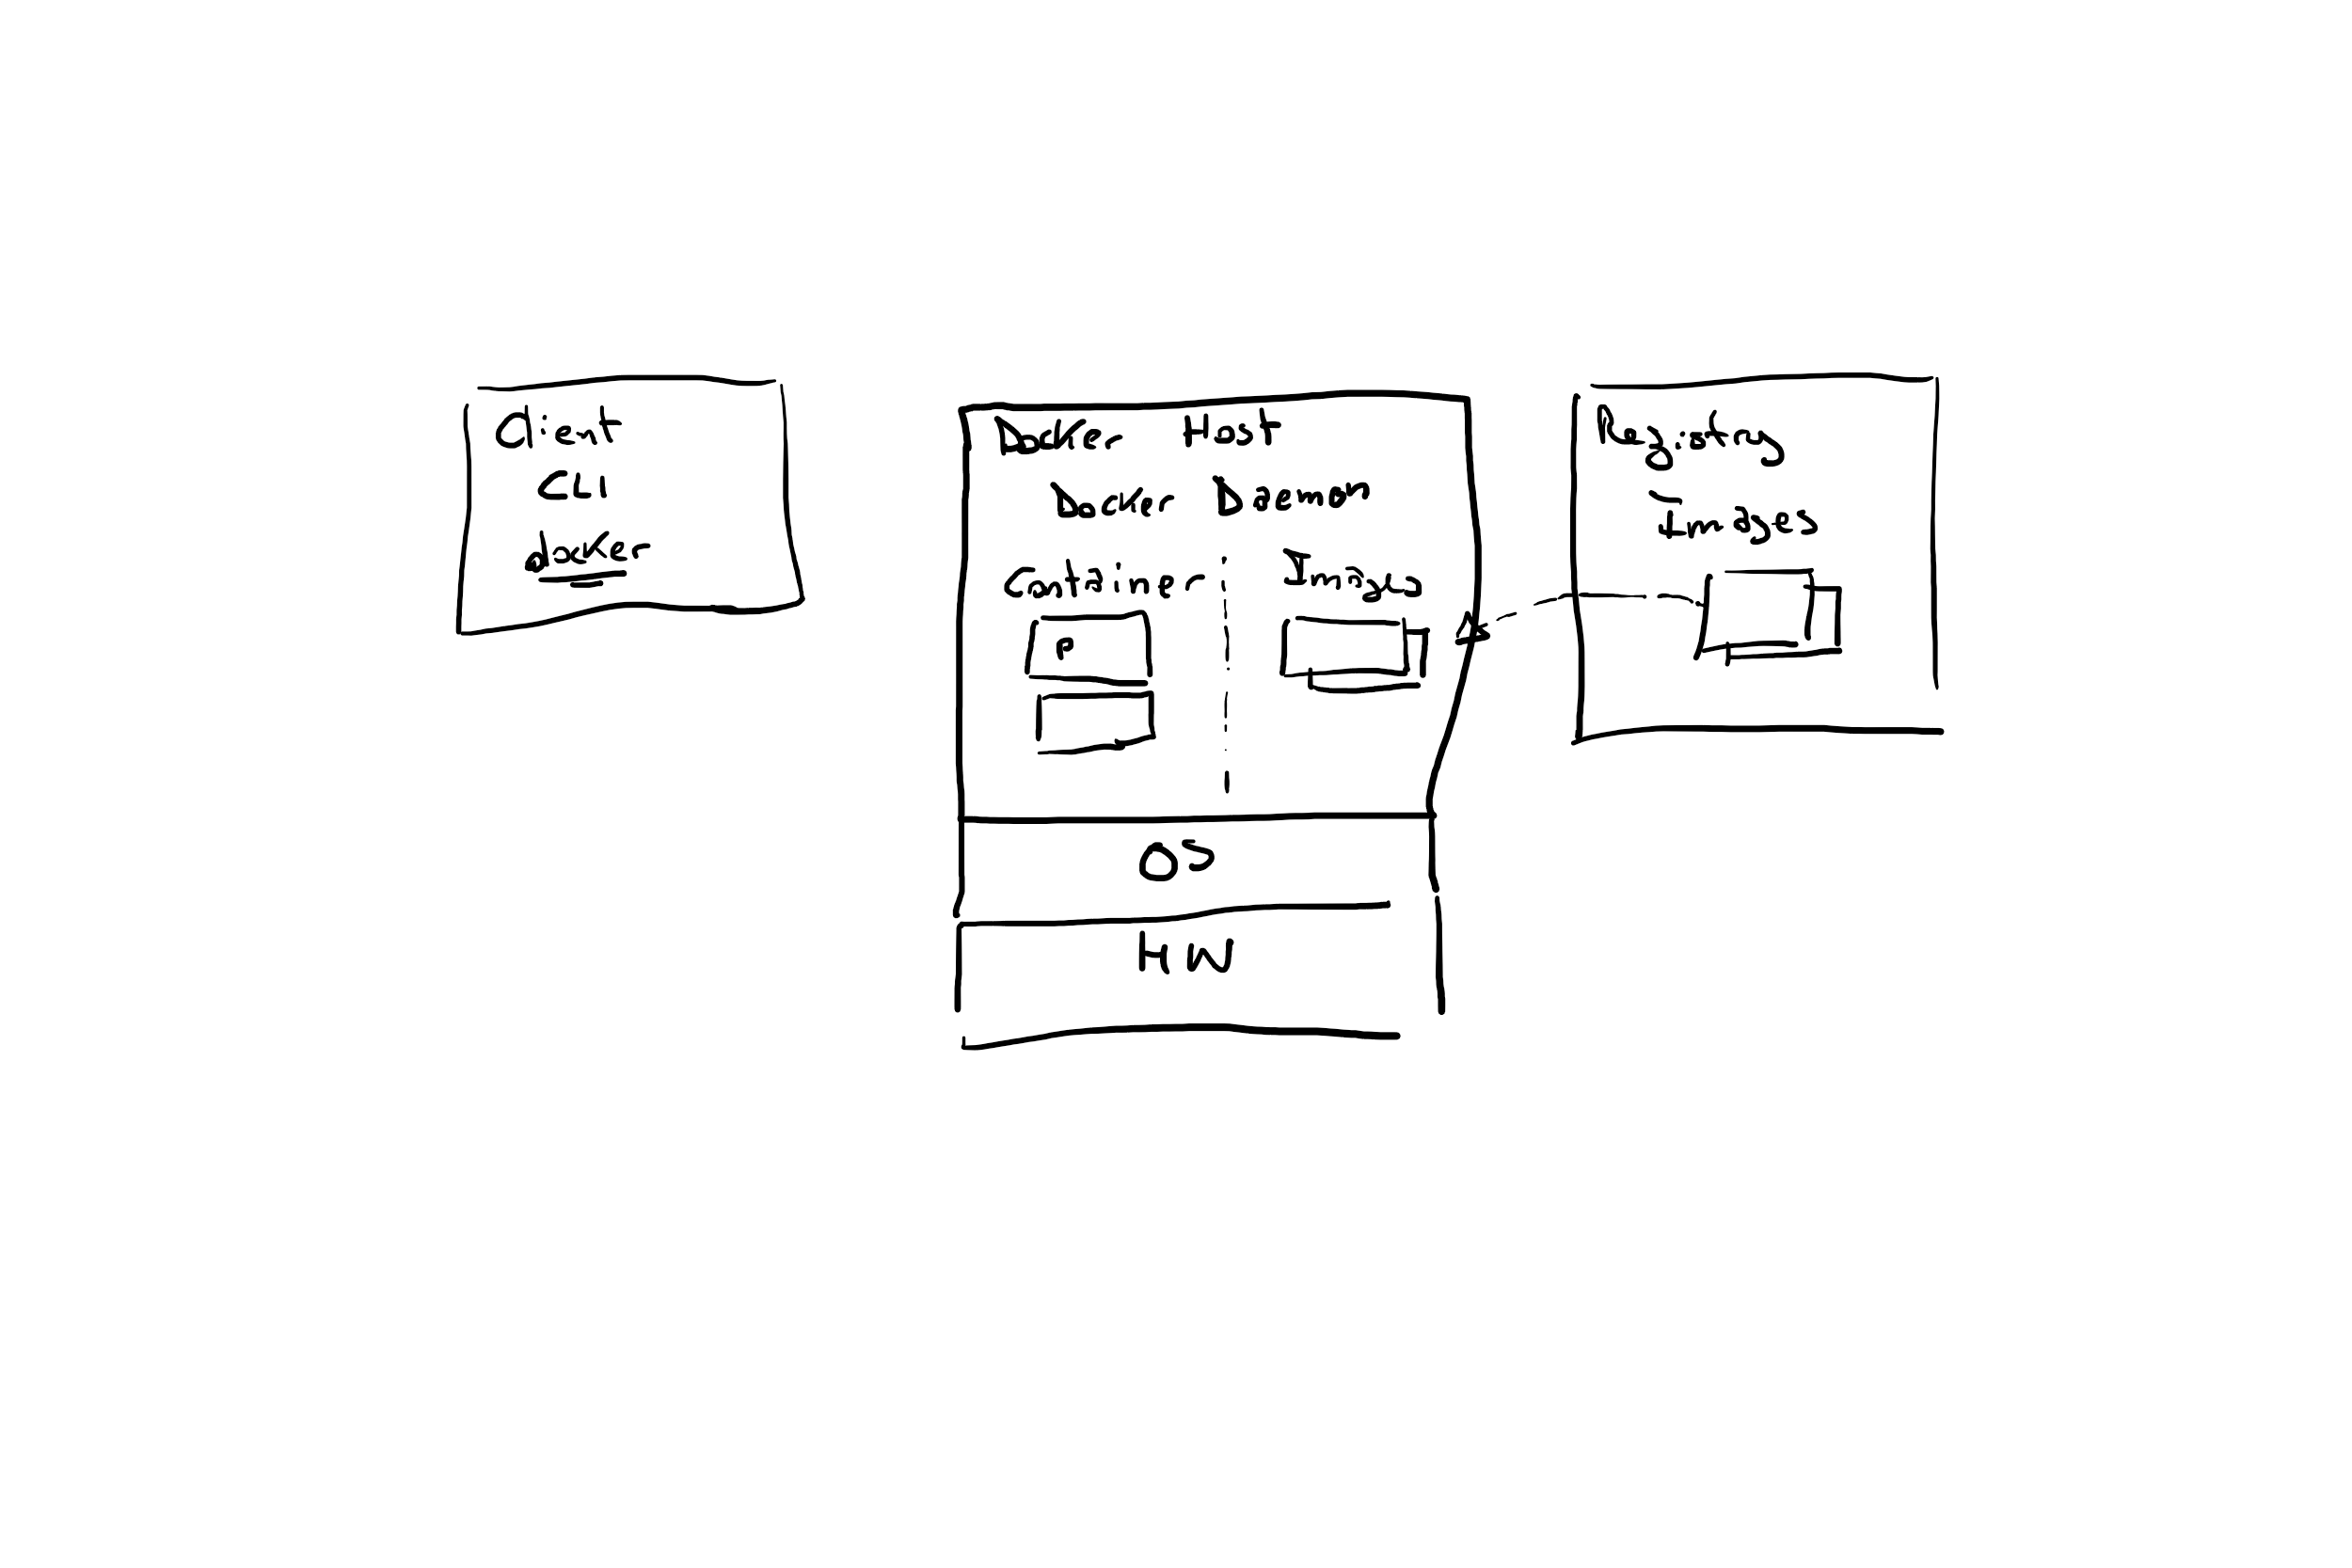 Client
CLI
docker
Docker Host
Docker Daemon
Container
Images
P
OS
HW
Registry
Images